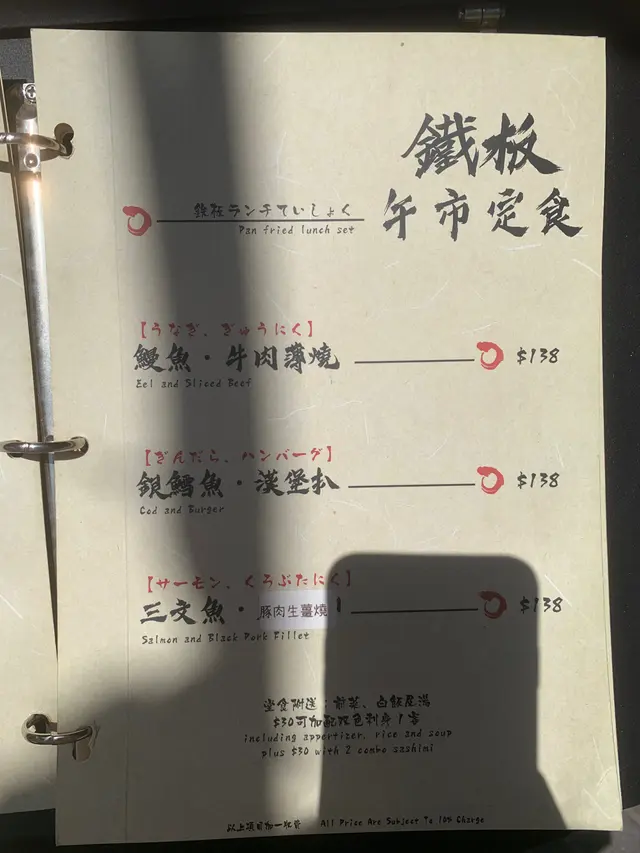 鐵板
午市定食
鉄板ランチていしょく
Pan fried lunch set
【うなぎ、ぎゅうにく】
鰻魚・牛肉薄燒 $138
Eel and Sliced Beef
【ぎんだら、ハンバーグ】
銀鱈魚・漢堡扒 $138
Cod and Burger
【サーモン、くろぶたにく】
三文魚・豚肉生薑燒 $138
Salmon and Black Pork Fillet
堂食附送：前菜、白飯及湯
$30可加配弍色刺身1客
including appertizer, rice and soup
plus $30 with 2 combo sashimi
以上項目加一收費 All Price Are Subject To 10% Charge